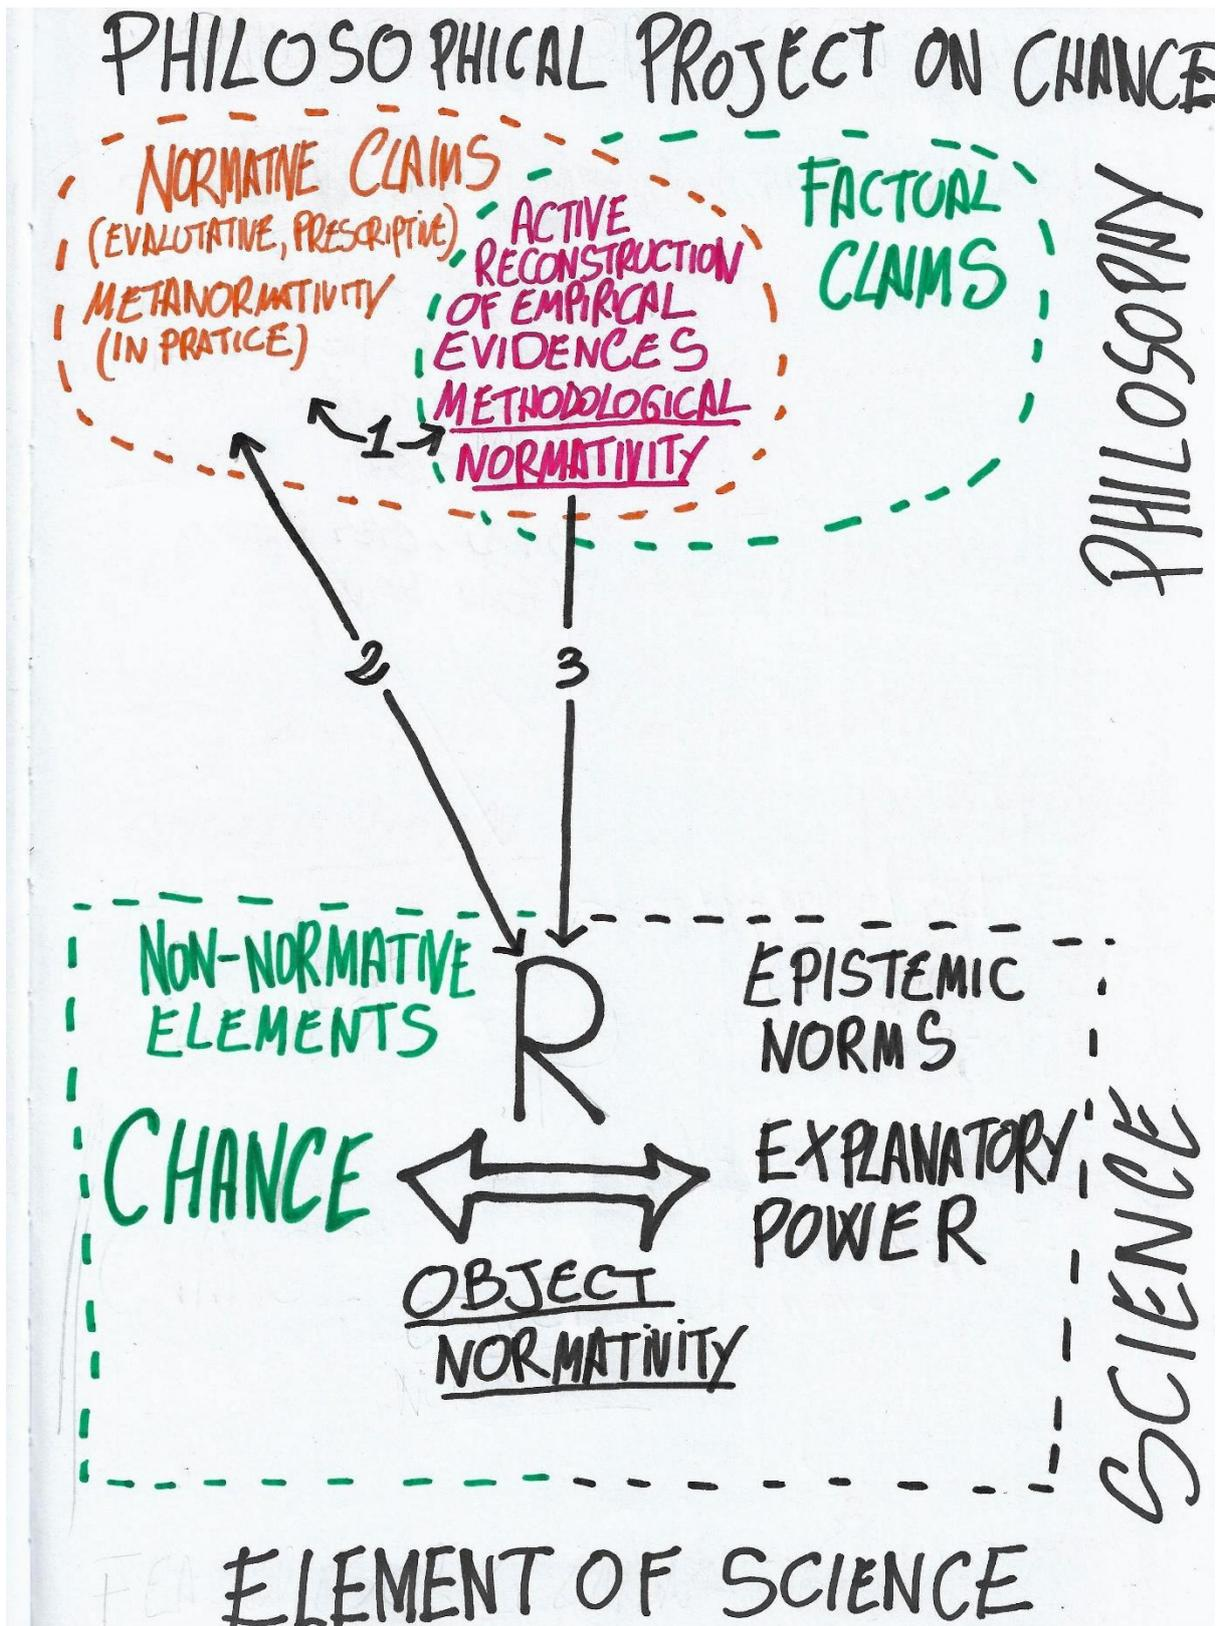 PHILOSOPHICAL PROJECT ON CHANCE
NORMATIVE CLAIMS
(EVALUTATIVE, PRESCRIPTIVE)
METANORMATIVITY
(IN PRATICE)
ACTIVE
RECONSTRUCTION
OF EMPIRICAL
EVIDENCES
METHODOLOGICAL
NORMATIVITY
FACTUAL
CLAIMS
PHILOSOPHY
1
2
3
NON-NORMATIVE
ELEMENTS
CHANCE
R
OBJECT
NORMATIVITY
EPISTEMIC
NORMS
EXPLANATORY
POWER
SCIENCE
ELEMENT OF SCIENCE